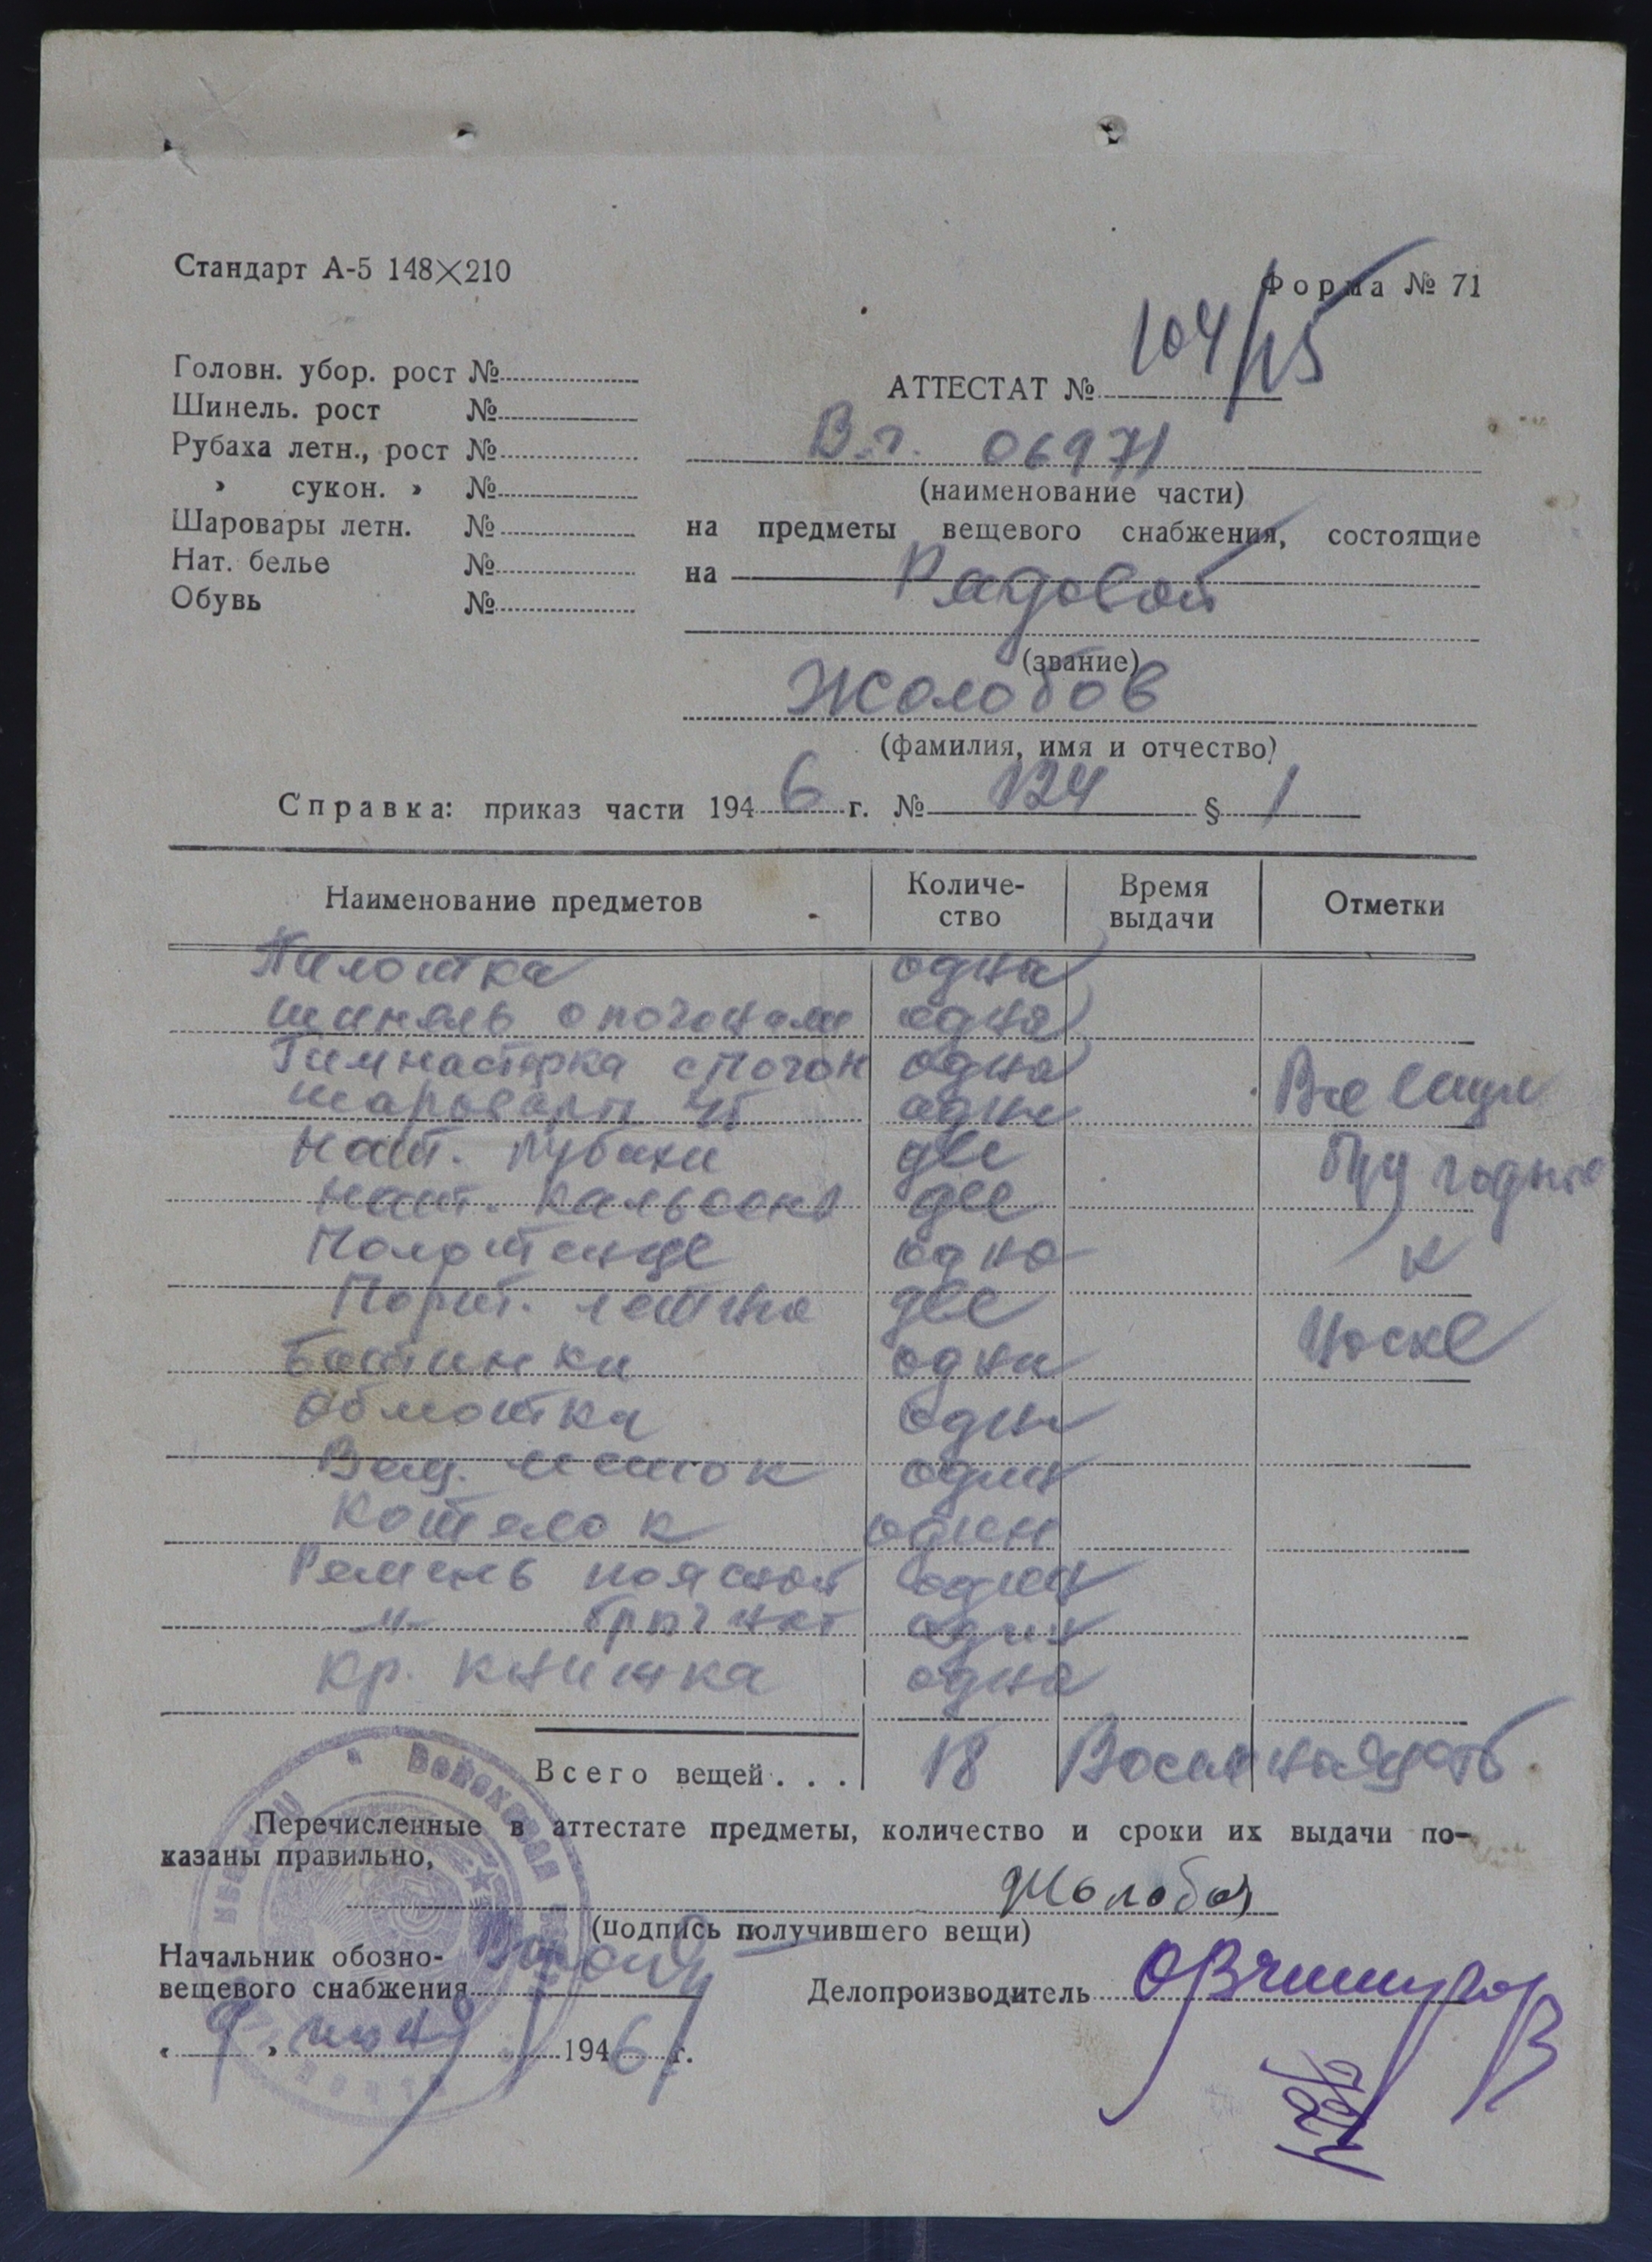 Стандарт А-5 148×210
Форма № 71
Головн. убор. рост №
Шинель. рост №
Рубаха летн., рост №
» сукон. » №
Шаровары летн. №
Нат. белье №
Обувь №
АТТЕСТАТ № 104/15
В.ч. 06971
(наименование части)
на предметы вещевого снабжения, состоящие
на Рядовой
(звание)
Жолобов
(фамилия, имя и отчество)
Справка: приказ части 1946 г. № 124 § 1
Наименование предметов Количе- Время Отметки
ство выдачи
Пилотка одна
шинель с погонами одна
Гимнастерка с погон одна
шаровары хб одни
Нат. рубахи две
Нат. кальсоны две
Полотенце одно
Порт. летние две
Ботинки одни
Обмотка одни
Вещ. мешок один
Котелок один
Ремень поясной один
-"- брючной один
Кр. книжка одна
Все вещи
годные
к
носке
Всего вещей... 18 Восемнадцать
Перечисленные в аттестате предметы, количество и сроки их выдачи по-
казаны правильно,
Жолобов
(подпись получившего вещи)
Начальник обозно-
вещевого снабжения
Делопроизводитель
« 9 » июня 1946 г.